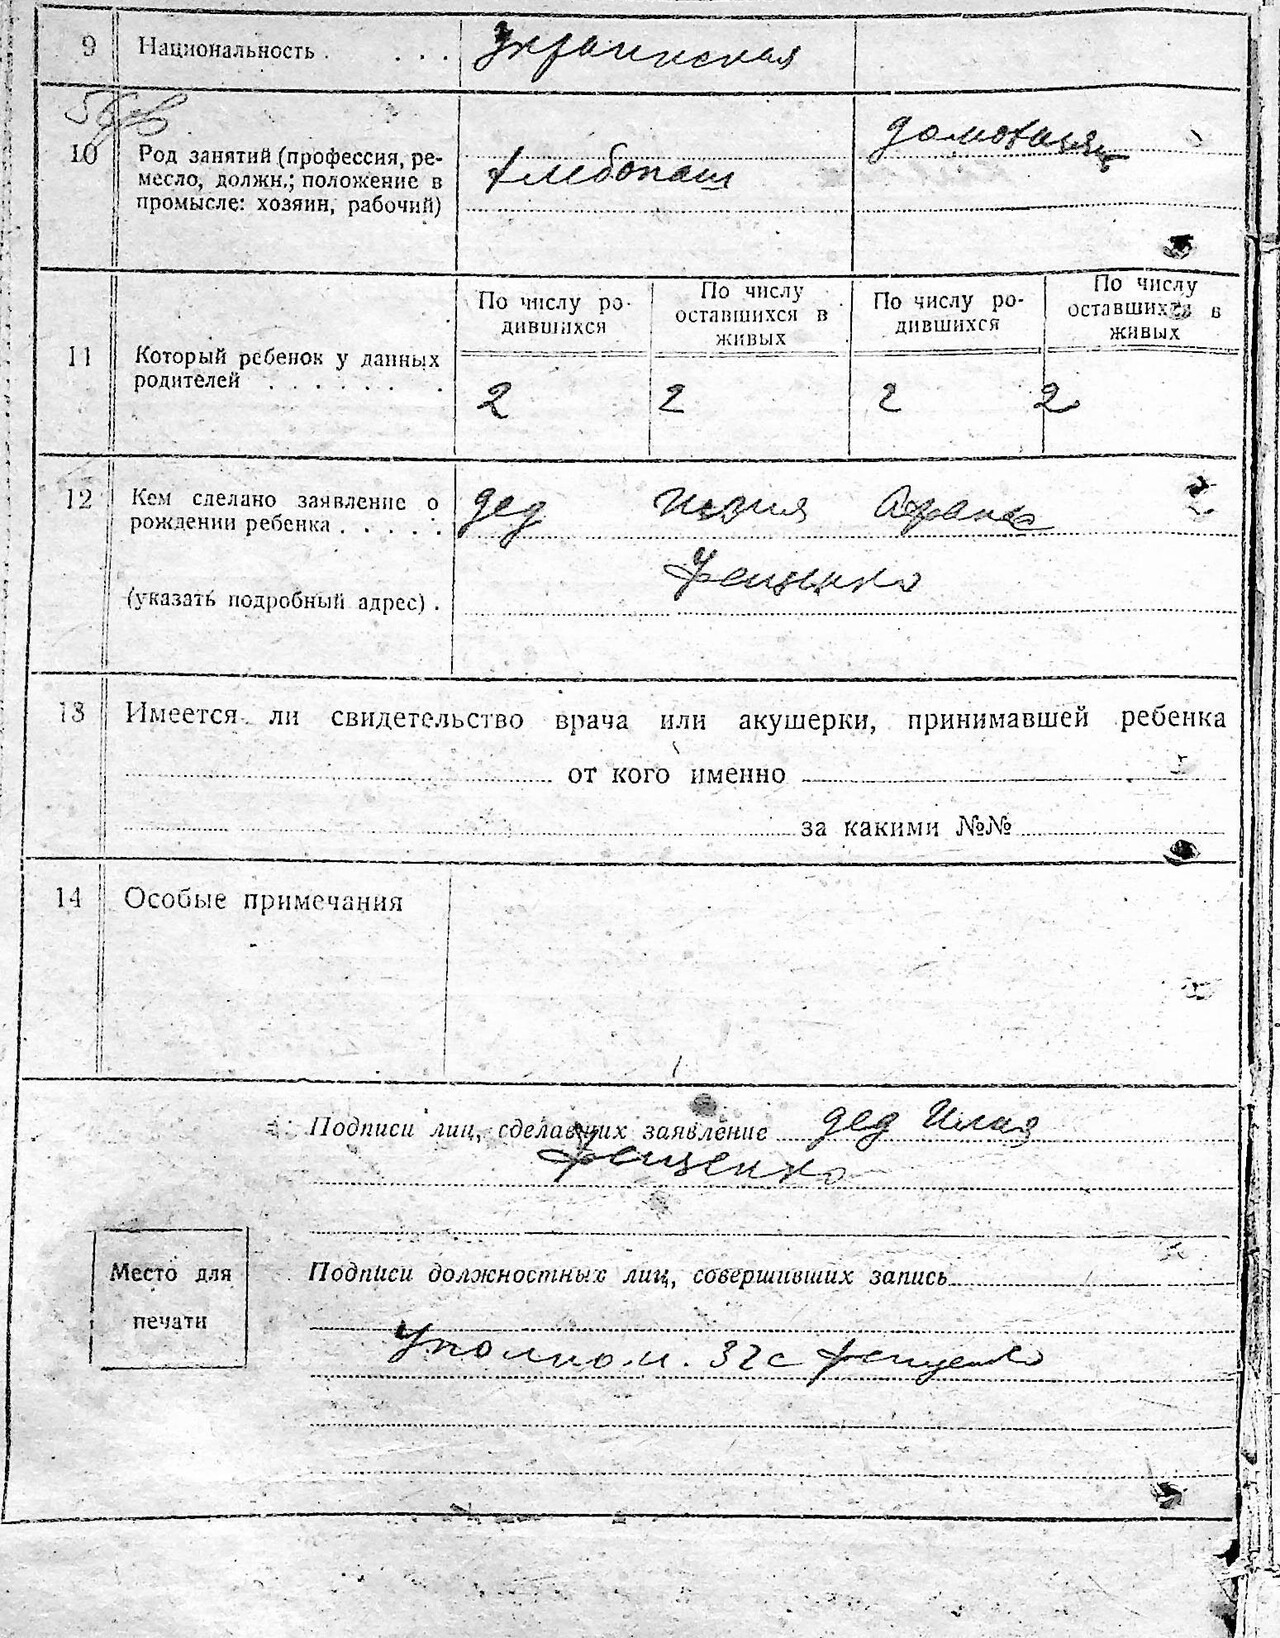 9 Национальность . . . . украинская
10 Род занятий (профессия, ре-
месло, должн.; положение в
промысле: хозяин, рабочий)
хлебопаш
11 Который ребенок у данных
родителей . . . . . . .
По числу ро-
дившихся
По числу
оставшихся в
живых
По числу ро-
дившихся
По числу
оставшихся в
живых
2 2 2 2
12 Кем сделано заявление о
рождении ребенка . . . . .
дед
(указать подробный адрес) .
13 Имеется ли свидетельство врача или акушерки, принимавшей ребенка
от кого именно
за какими №№
14 Особые примечания
Подписи лиц, сделавших заявление дед Илия
Место для
печати
Подписи должностных лиц, совершивших запись
Уполном.